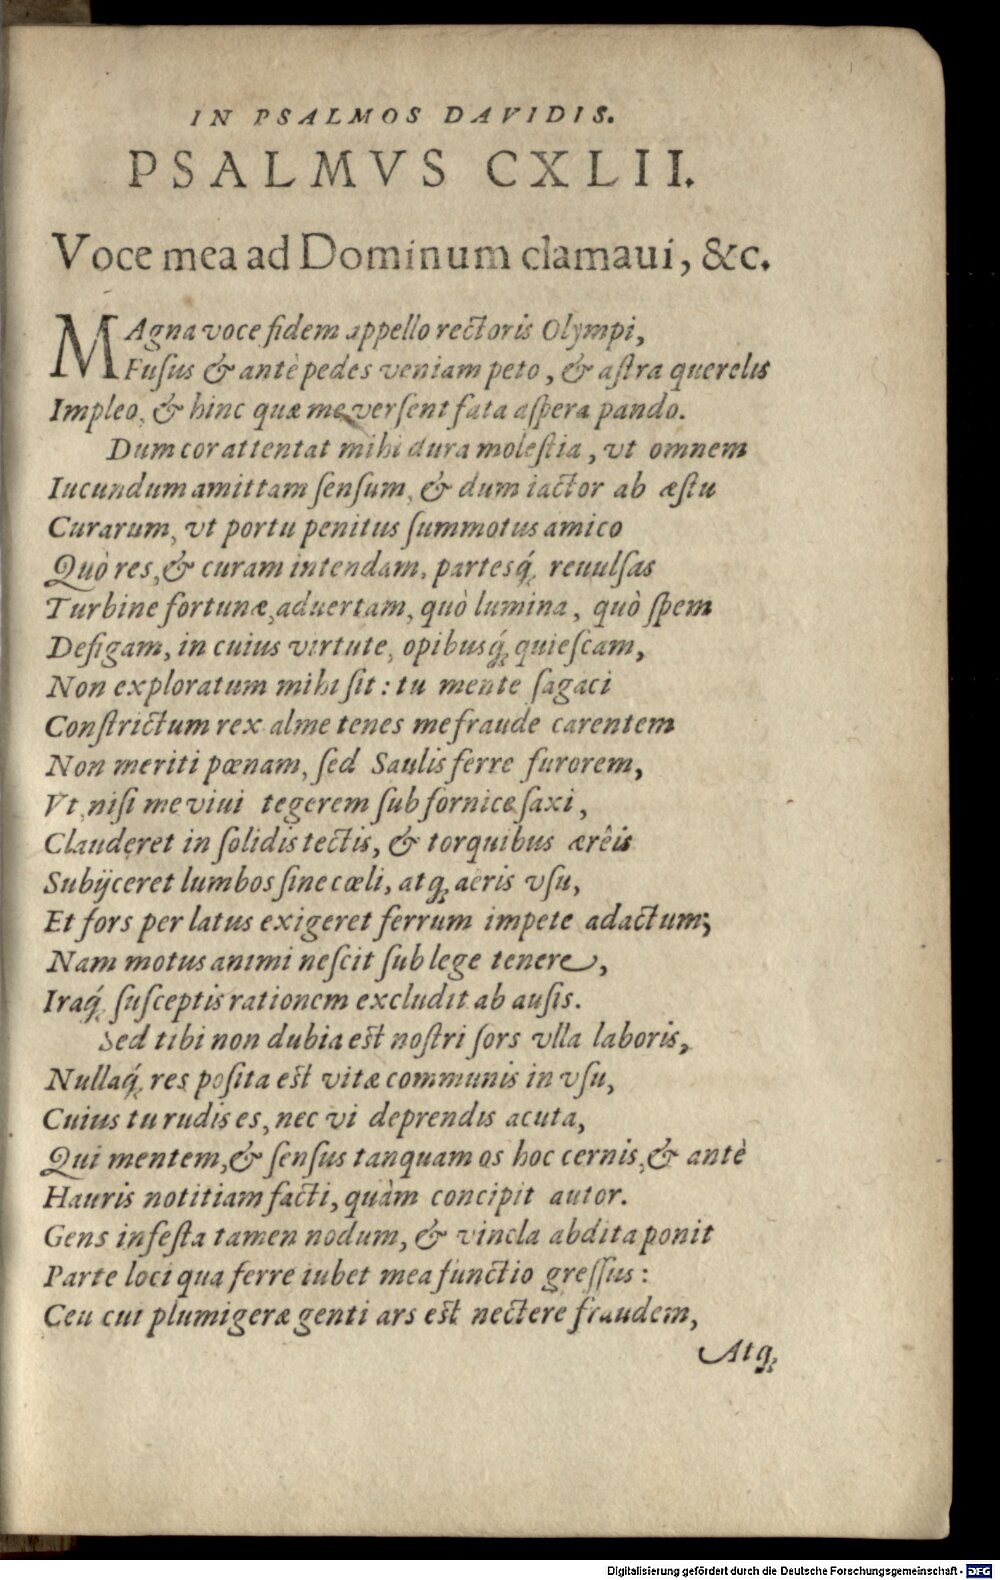 IN PSALMOS DAVIDIS.
PSALMVS CXLII.
Voce mea ad Dominum clamaui, &c.
MAgna voce fidem appello rectoris Olympi,
Fusus & antè pedes veniam peto, & astra querelis
Impleo, & hinc quæ me versent fata aspera pando.
Dum cor attentat mihi dura molestia, vt omnem
Iucundum amittam sensum, & dum iactor ab æstu
Curarum, vt portu penitus summotus amico
Quò res, & curam intendam, partesq́; reuulsas
Turbine fortunæ, aduertam, quò lumina, quò spem
Defigam, in cuius virtute, opibusq́; quiescam,
Non exploratum mihi sit: tu mente sagaci
Constrictum rex alme tenes me fraude carentem
Non meriti pœnam, sed Saulis ferre furorem,
Vt nisi me viui tegerem sub fornice saxi,
Clauderet in solidis tectis, & torquibus ærêis
Subijceret lumbos sine cœli, atq; aëris vsu,
Et fors per latus exigeret ferrum impete adactum;
Nam motus animi nescit sub lege tenere,
Iraq́; susceptis rationem excludit ab ausis.
Sed tibi non dubia est nostri sors vlla laboris,
Nullaq́; res posita est vitæ communis in vsu,
Cuius tu rudis es, nec vi deprendis acuta,
Qui mentem, & sensus tanquam os hoc cernis, & antè
Hauris notitiam facti, quàm concipit autor.
Gens infesta tamen nodum, & vincla abdita ponit
Parte loci qua ferre iubet mea functio gressus:
Ceu cui plumigeræ genti ars est nectere fraudem,
Atq;
Digitalisierung gefördert durch die Deutsche Forschungsgemeinschaft - DFG